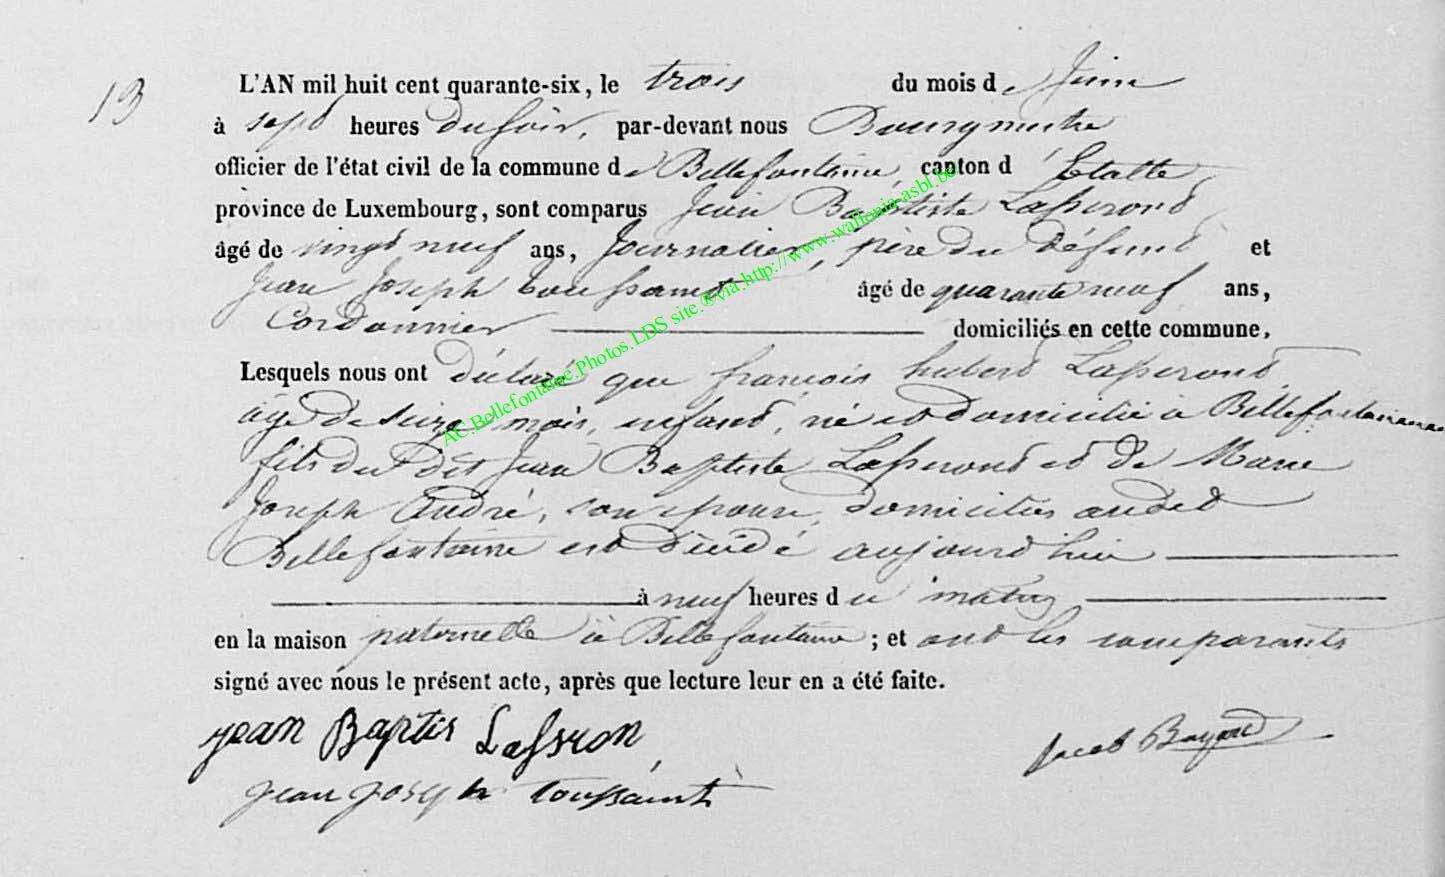 13
L'AN mil huit cent quarante-six, le trois du mois de Juin
à sept heures du soir, par-devant nous Bourgmestre
officier de l'état civil de la commune de Bellefontaine, canton d'Etalle
province de Luxembourg, sont comparus Jean Baptiste Lasseront
âgé de vingt neuf ans, Journalier, père du défunt et
Jean Joseph Toussaint âgé de quarante neuf ans,
Cordonnier domiciliés en cette commune,
Lesquels nous ont déclaré que françois hubert Lasseront
âgé de seize mois, enfant, né et domicilié à Bellefontaine
fils du dit Jean Baptiste Lasseront et de Marie
Joseph André, son épouse, domiciliés audit
Bellefontaine est décédé aujourd'hui
à neuf heures du matin
en la maison paternelle à Bellefontaine ; et ont les comparants
signé avec nous le présent acte, après que lecture leur en a été faite.
jean Baptis Lassron
Jacob Bayard
jean joseph toussaint
AC.Bellefontaine.Photos.LDS site.®via.http://www.wallonia-asbl.be